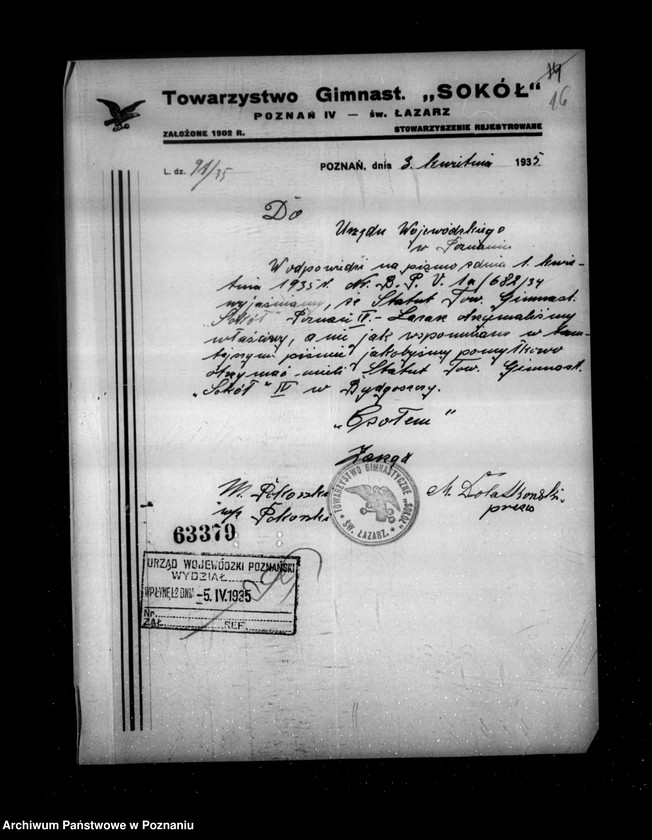 14
16
Towarzystwo Gimnast. „SOKÓŁ"
POZNAŃ IV — św. ŁAZARZ
ZAŁOŻONE 1902 R.
STOWARZYSZENIE REJESTROWANE
L. dz. 91/35
POZNAŃ, dnia 3. kwietnia 1935
Do
Urzędu Wojewódzkiego
w Poznaniu
W odpowiedzi na pismo z dnia 1. kwie-
tnia 1935 r. Nr. B. P. V. 1a/682/34
wyjaśniamy, że Statut Tow. Gimnast.
"Sokół" Poznań IV. - Łazarz otrzymaliśmy
właściwy, a nie jak wspomniano w tam-
tejszym piśmie jakobyśmy pomyłkowo
otrzymać mieli Statut Tow. Gimnast.
„Sokół" IV w Bydgoszczy.
„Czołem"
Zarząd
M.
TOWARZYSTWO GIMNASTYCZNE „SOKÓŁ"
* ŚW. ŁAZARZ. *
prezes
63379
URZĄD WOJEWÓDZKI POZNAŃSKI
WYDZIAŁ
WPŁYNĘŁO DNIA -5. IV. 1935
Nr.
ZAŁ. REF.
Archiwum Państwowe w Poznaniu